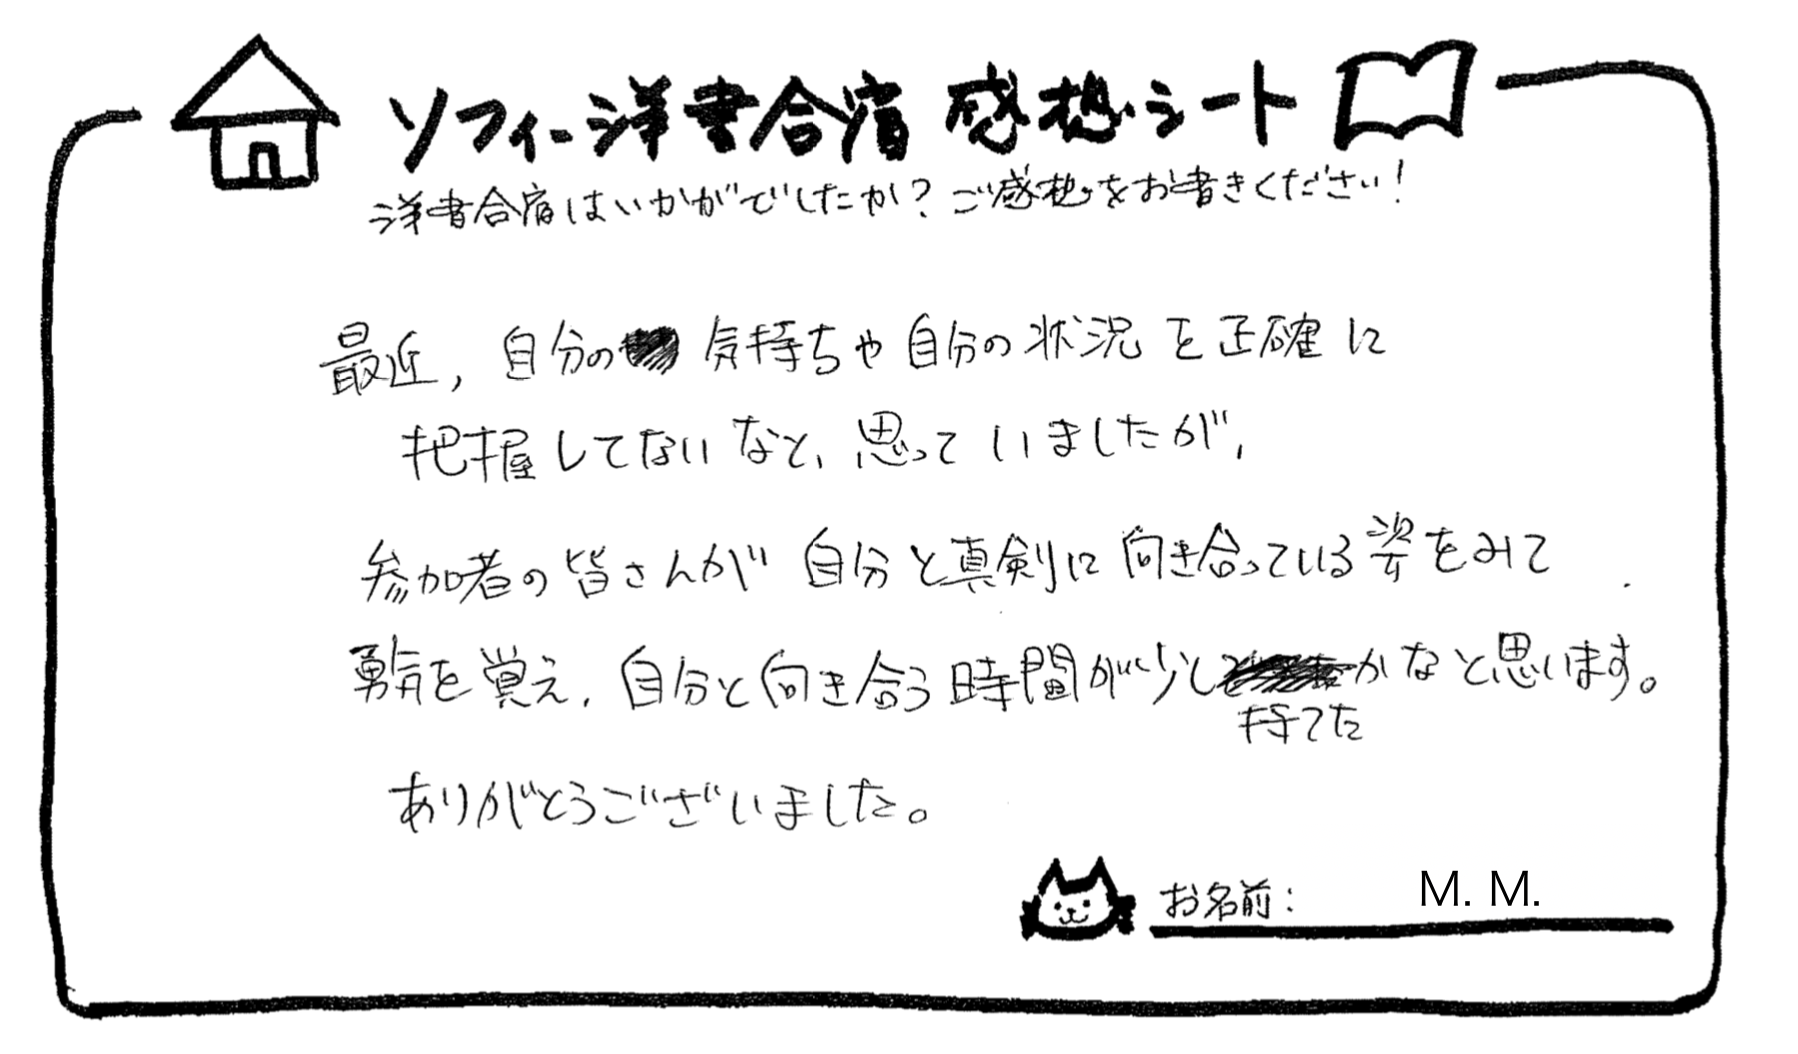 ソフィー洋書合宿 感想シート
洋書合宿はいかがでしたか？ご感想をお書きください！
最近, 自分の気持ちや自分の状況を正確に
把握してないなと、思っていましたが,
参加者の皆さんが自分と真剣に向き合っている姿をみて
勇気を覚え, 自分と向き合う時間が少しかなと思います。
持てた
ありがとうございました。
お名前: M. M.